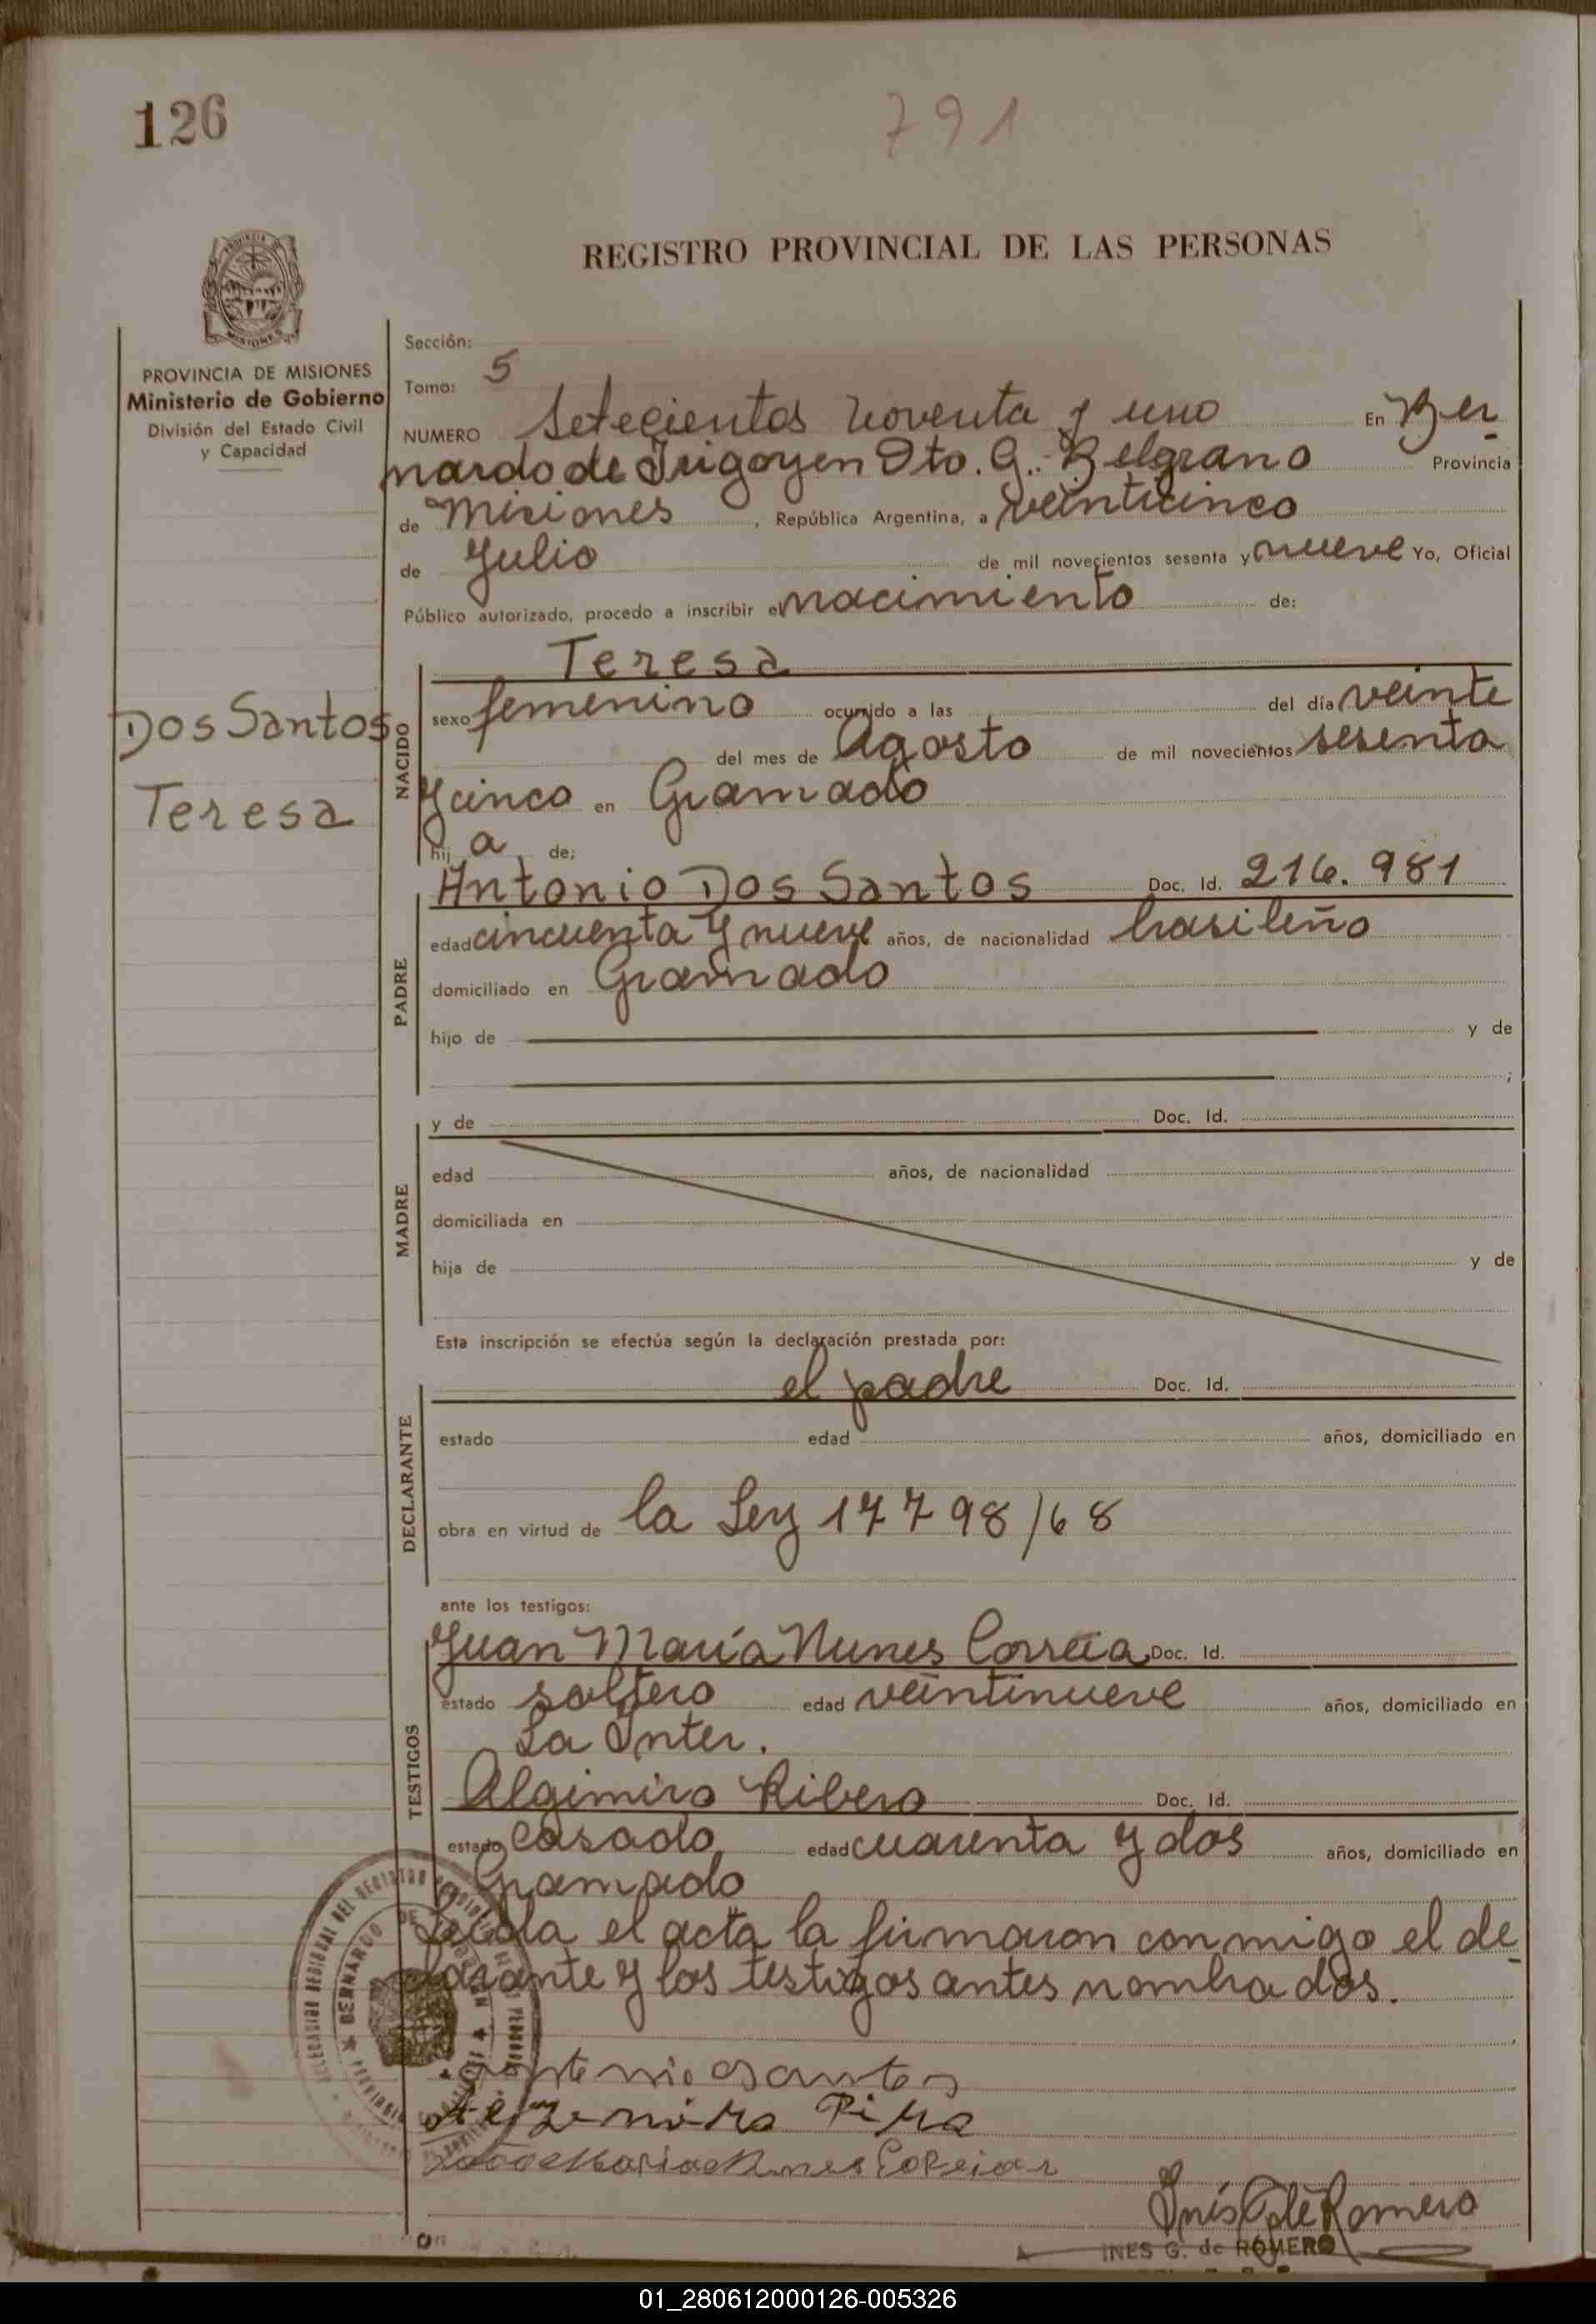 126
791
REGISTRO PROVINCIAL DE LAS PERSONAS
PROVINCIA DE MISIONES
Ministerio de Gobierno
División del Estado Civil
y Capacidad
Sección:
Tomo: 5
NUMERO Setecientos noventa y uno En Ber
nardo de Irigoyen Dto. G. Belgrano Provincia
de Misiones, República Argentina, a veinticinco
de Julio de mil novecientos sesenta y nueve Yo, Oficial
Público autorizado, procedo a inscribir el nacimiento de:
Dos Santos
Teresa
NACIDO
Teresa
sexo femenino ocurrido a las del día veinte
del mes de Agosto de mil novecientos sesenta
y cinco en Gramado
hija de:
PADRE
Antonio Dos Santos Doc. Id. 216.981
edad cincuenta y nueve años, de nacionalidad brasileño
domiciliado en Gramado
hijo de y de
;
MADRE
y de Doc. Id.
edad años, de nacionalidad
domiciliada en
hija de y de
Esta inscripción se efectúa según la declaración prestada por:
DECLARANTE
el padre Doc. Id.
estado edad años, domiciliado en
obra en virtud de la Ley 17798/68
ante los testigos:
TESTIGOS
Juan María Nunes Correia Doc. Id.
estado soltero edad veintinueve años, domiciliado en
La Inter.
Algimiro Ribero Doc. Id.
estado casado edad cuarenta y dos años, domiciliado en
Gramado
Leída el acta la firmaron conmigo el de
clarante y los testigos antes nombrados.
Antonio Santos
INES G. de ROMERO
01_280612000126-005326